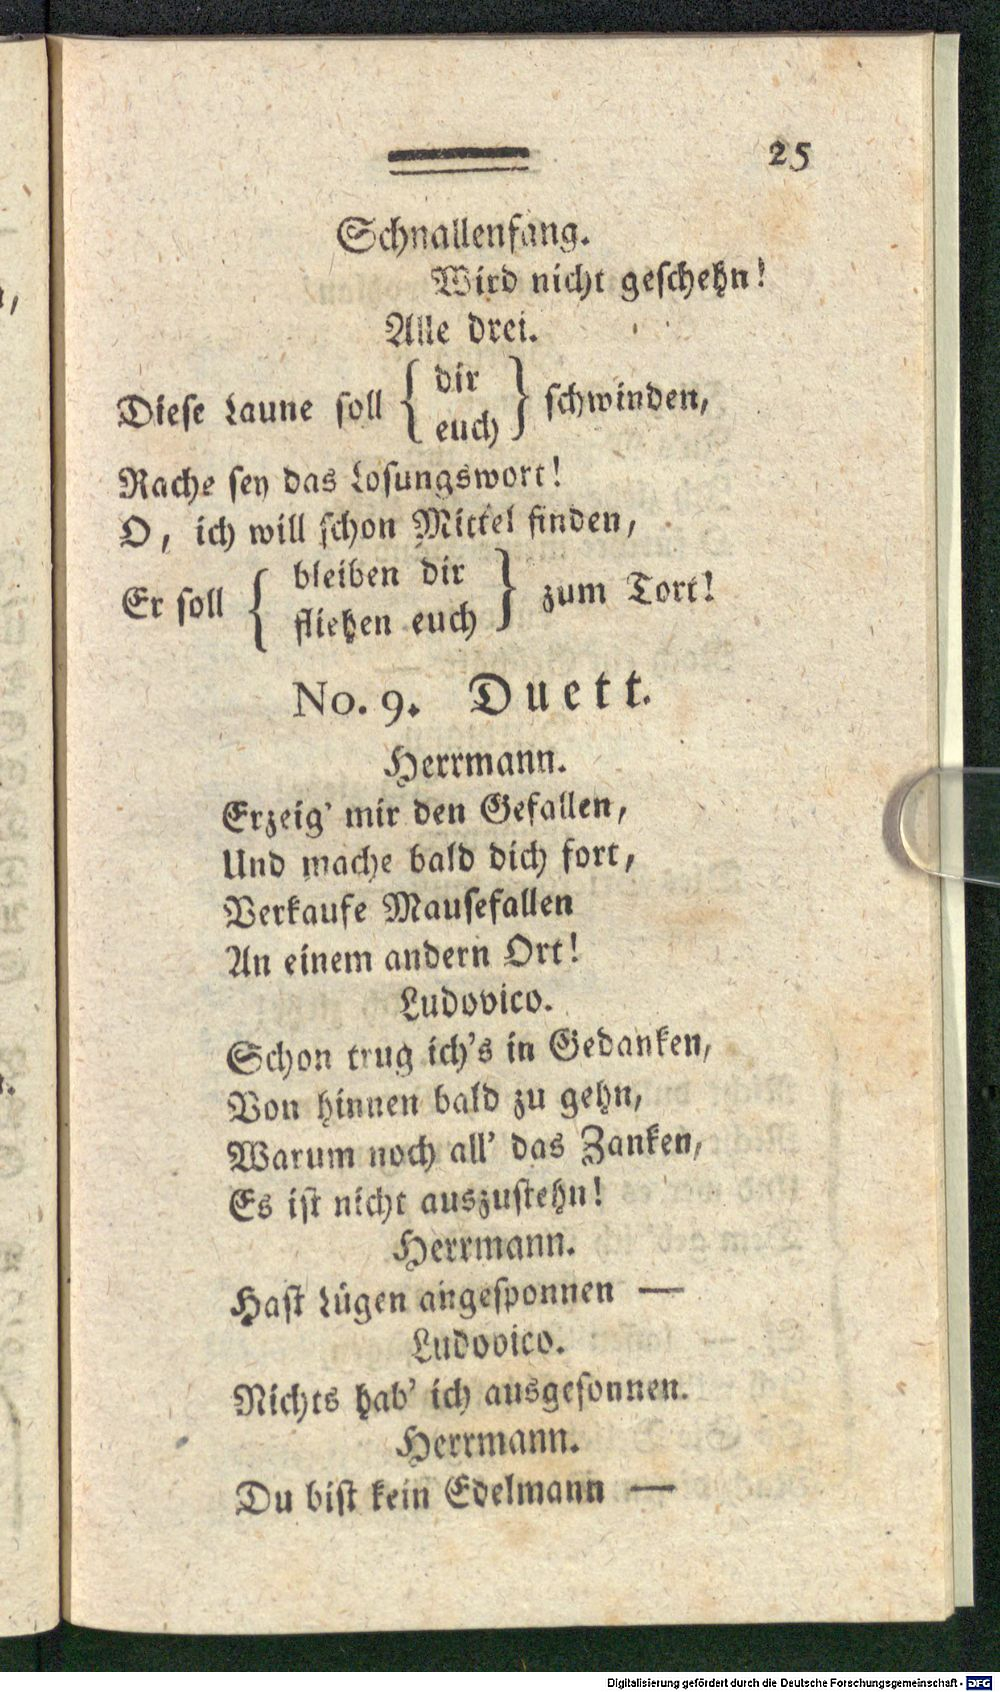 25
Schnallenfang.
Wird nicht geschehn!
Alle drei.
Diese Laune soll { dir / euch } schwinden,
Rache sey das Losungswort!
O, ich will schon Mittel finden,
Er soll { bleiben dir / fliehen euch } zum Tort!
No. 9. Duett.
Herrmann.
Erzeig' mir den Gefallen,
Und mache bald dich fort,
Verkaufe Mausefallen
An einem andern Ort!
Ludovico.
Schon trug ich's in Gedanken,
Von hinnen bald zu gehn,
Warum noch all' das Zanken,
Es ist nicht auszustehn!
Herrmann.
Hast Lügen angesponnen —
Ludovico.
Nichts hab' ich ausgesonnen.
Herrmann.
Du bist kein Edelmann —
Digitalisierung gefördert durch die Deutsche Forschungsgemeinschaft - DFG